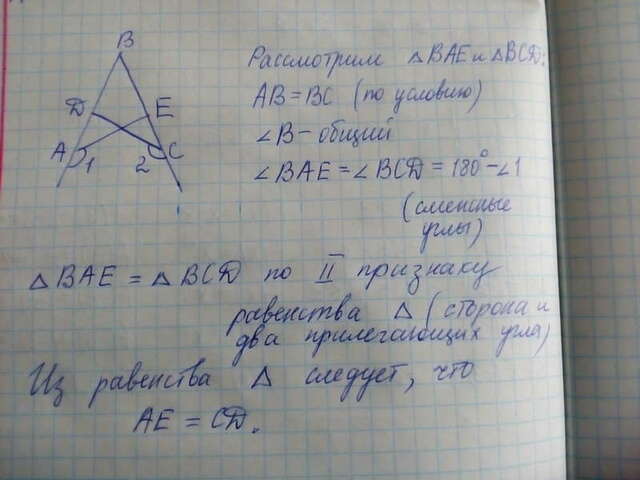 B
D
E
A
1
2
C
Рассмотрим △BAE и △BCD:
AB = BC (по условию)
∠B – общий
∠BAE = ∠BCD = 180° – ∠1
(смежные
углы)
△BAE = △BCD по II признаку
равенства △ (сторона и
два прилегающих угла)
Из равенства △ следует, что
AE = CD.